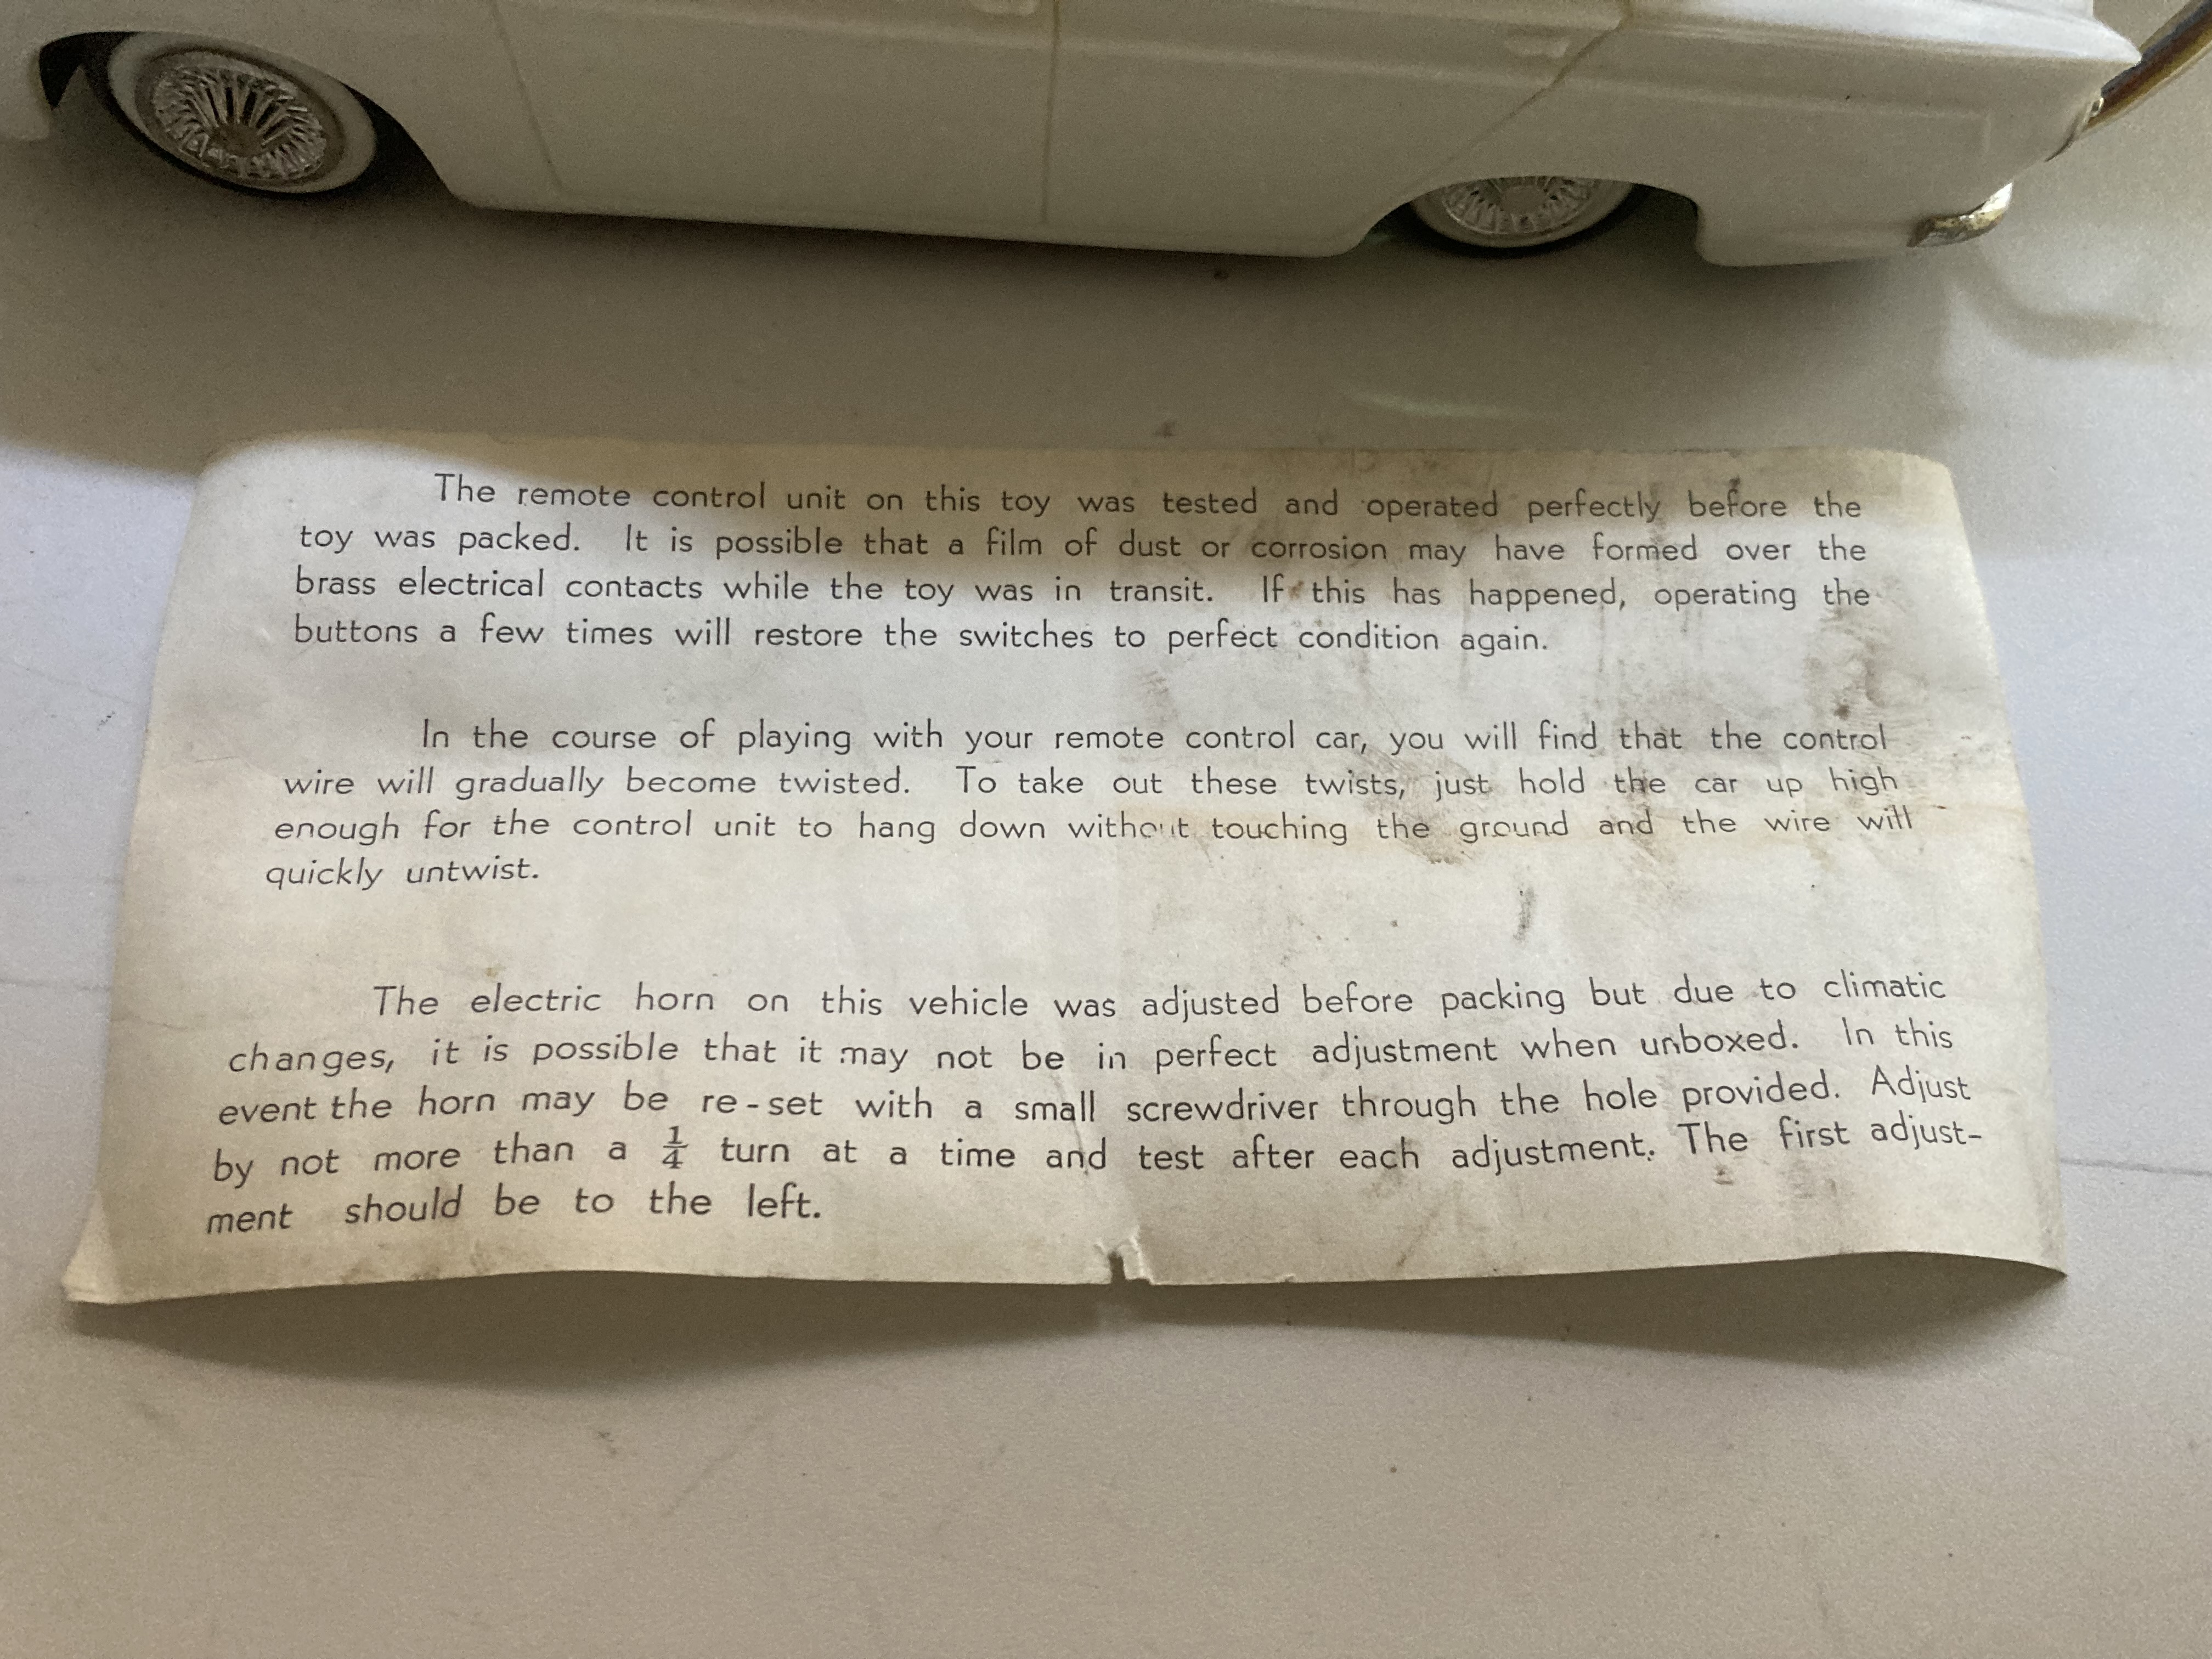 The remote control unit on this toy was tested and operated perfectly before the
toy was packed. It is possible that a film of dust or corrosion may have formed over the
brass electrical contacts while the toy was in transit. If this has happened, operating the
buttons a few times will restore the switches to perfect condition again.
In the course of playing with your remote control car, you will find that the control
wire will gradually become twisted. To take out these twists, just hold the car up high
enough for the control unit to hang down without touching the ground and the wire will
quickly untwist.
The electric horn on this vehicle was adjusted before packing but due to climatic
changes, it is possible that it may not be in perfect adjustment when unboxed. In this
event the horn may be re-set with a small screwdriver through the hole provided. Adjust
by not more than a 1/4 turn at a time and test after each adjustment. The first adjust-
ment should be to the left.